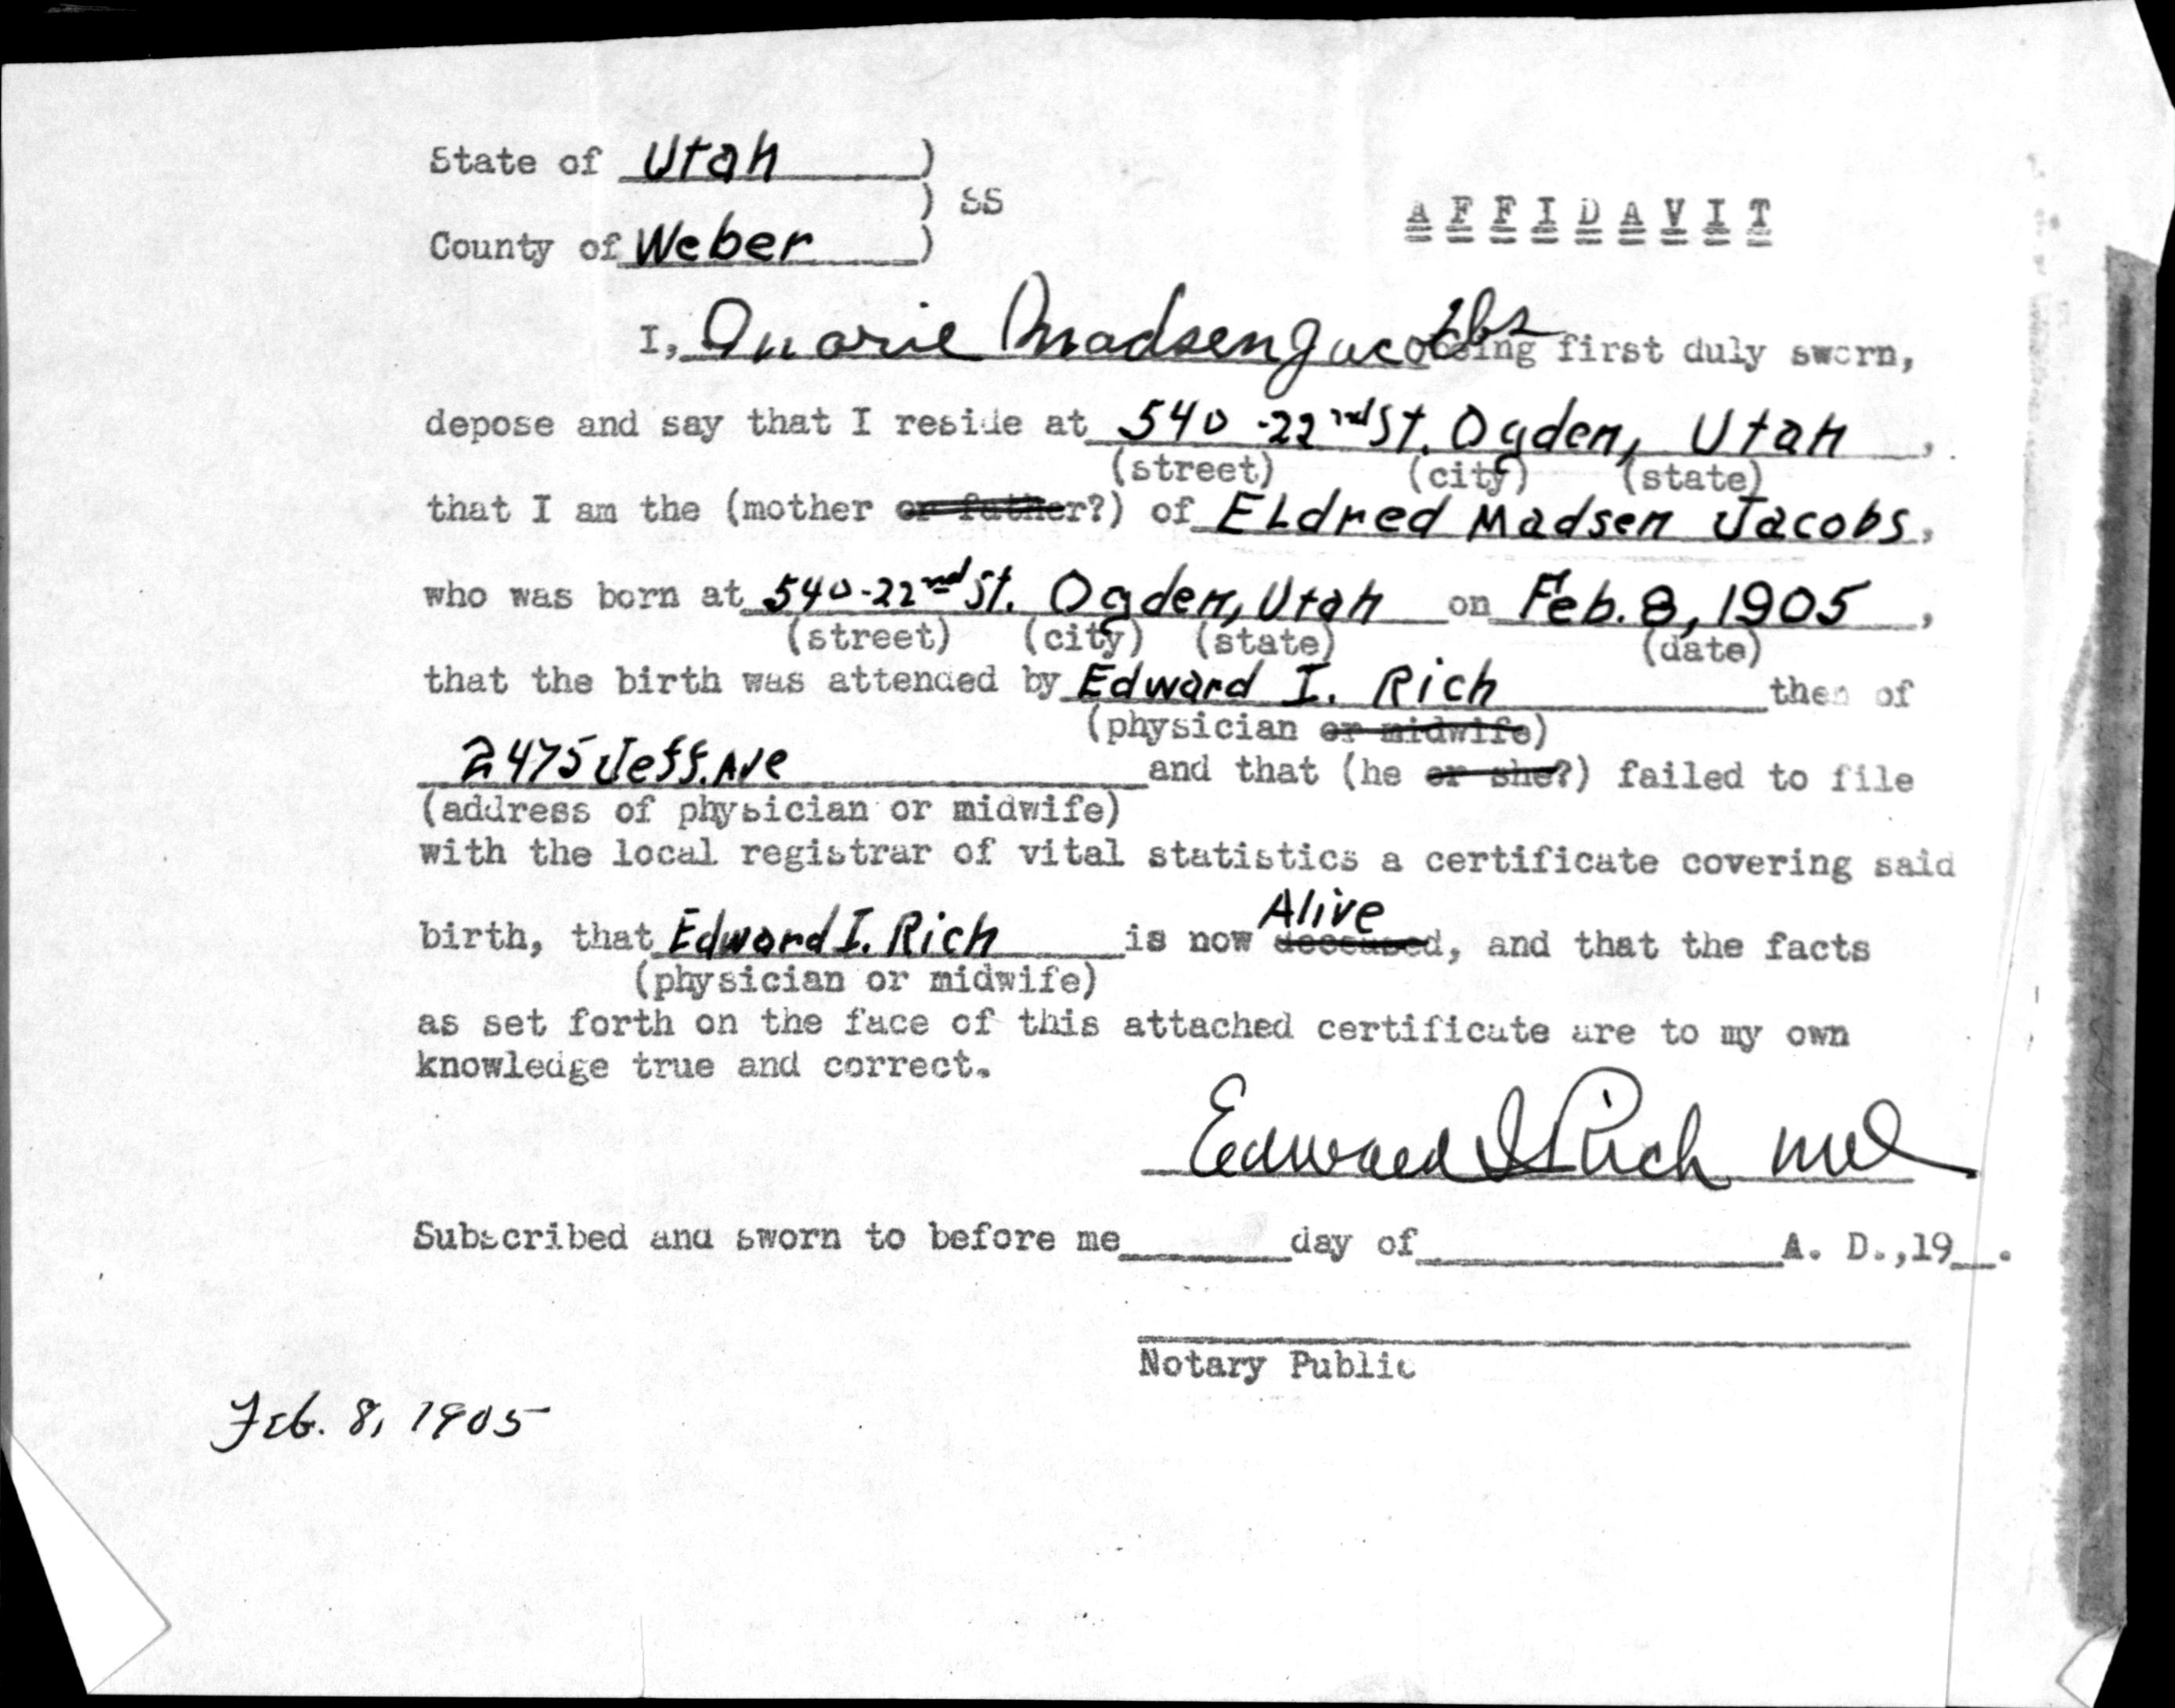 State of Utah )
) SS
County of Weber )
AFFIDAVIT
I, Marie Madsen Jacobs being first duly sworn,
depose and say that I reside at 540 - 22nd St. Ogden, Utah,
(street) (city) (state)
that I am the (mother or father?) of Eldred Madsen Jacobs,
who was born at 540-22nd St. Ogden, Utah on Feb. 8, 1905,
(street) (city) (state) (date)
that the birth was attended by Edward I. Rich then of
(physician or midwife)
2475 Jeff. Ave and that (he or she?) failed to file
(address of physician or midwife)
with the local registrar of vital statistics a certificate covering said
Alive
birth, that Edward I. Rich is now deceased, and that the facts
(physician or midwife)
as set forth on the face of this attached certificate are to my own
knowledge true and correct.
Edward I Rich MD
Subscribed and sworn to before me ____ day of ____ A. D.,19__.
Notary Public
Feb. 8, 1905